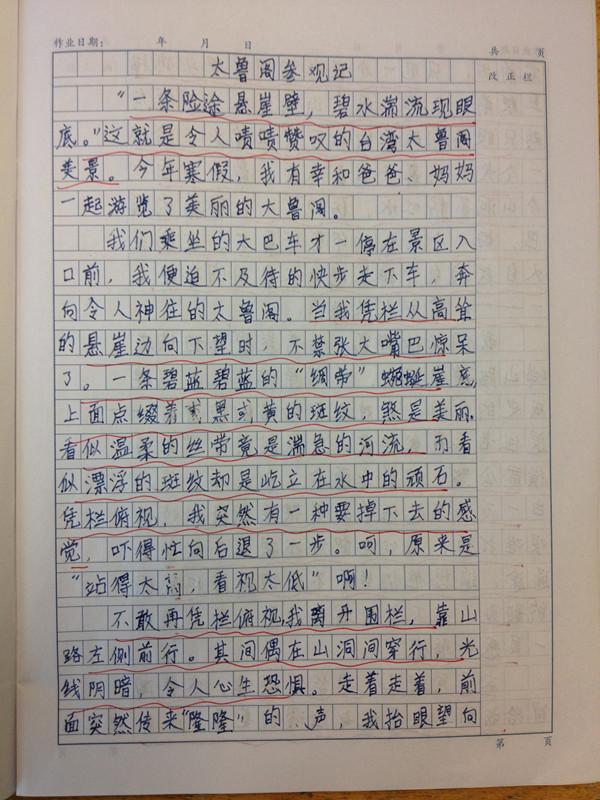 作业日期： 年 月 日 共 页
太鲁阁参观记
改正栏
“一条险途悬崖壁，碧水湍流现眼
底。”这就是令人啧啧赞叹的台湾太鲁阁
美景。今年寒假，我有幸和爸爸、妈妈
一起游览了美丽的大鲁阁。
我们乘坐的大巴车才一停在景区入
口前，我便迫不及待的快步走下车，奔
向令人神往的太鲁阁。当我凭栏从高耸
的悬崖边向下望时，不禁张大嘴巴惊呆
了。一条碧蓝碧蓝的“绸带”蜿蜒崖底，
上面点缀着或黑或黄的斑纹，煞是美丽.
看似温柔的丝带竟是湍急的河流，而看
似漂浮的斑纹却是屹立在水中的顽石。
凭栏俯视，我突然有一种要掉下去的感
觉，吓得忙向后退了一步。呵，原来是
“站得太高，看视太低”啊！
不敢再凭栏俯视，我离开围栏，靠山
路左侧前行。其间偶在山洞间穿行，光
线阴暗，令人心生恐惧。走着走着，前
面突然传来“隆隆”的 声，我抬眼望向
第 页